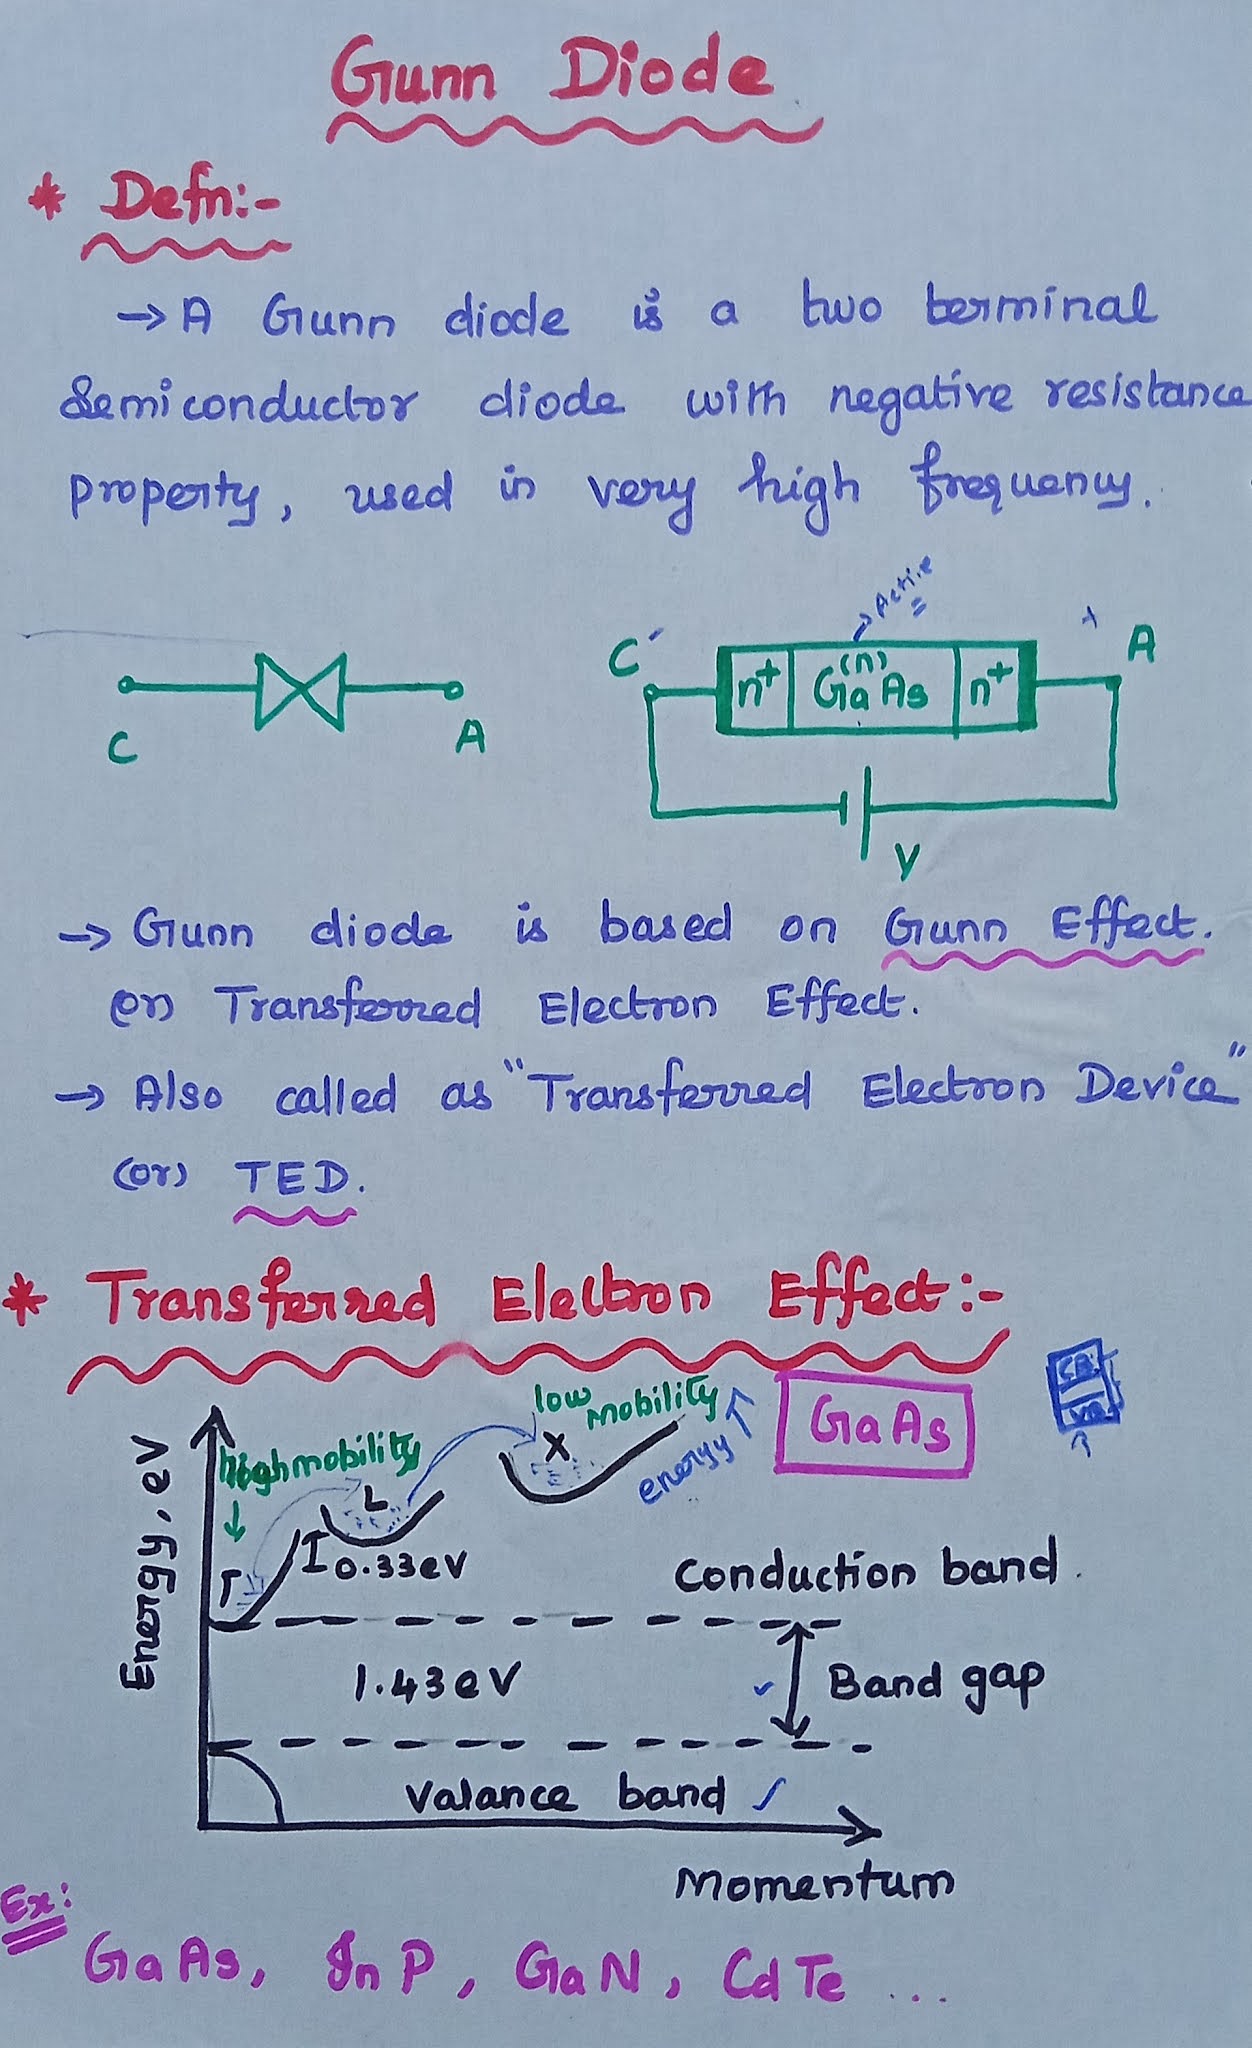 Gunn Diode
* Defn:-
→ A Gunn diode is a two terminal
Semiconductor diode with negative resistance
property, used in very high frequency.
→ Active
C - n+ (n) GaAs n+ + A
C A
V
→ Gunn diode is based on Gunn Effect.
(or) Transferred Electron Effect.
→ Also called as "Transferred Electron Device"
(or) TED.
* Transferred Electron Effect:-
low mobility
energy ↑
GaAs
CB
VB
high mobility
↓
X
L
Γ
I 0.33eV
Conduction band.
Energy, eV
1.43eV
Band gap
Valance band
Momentum
Ex:
GaAs, InP, GaN, CdTe ...